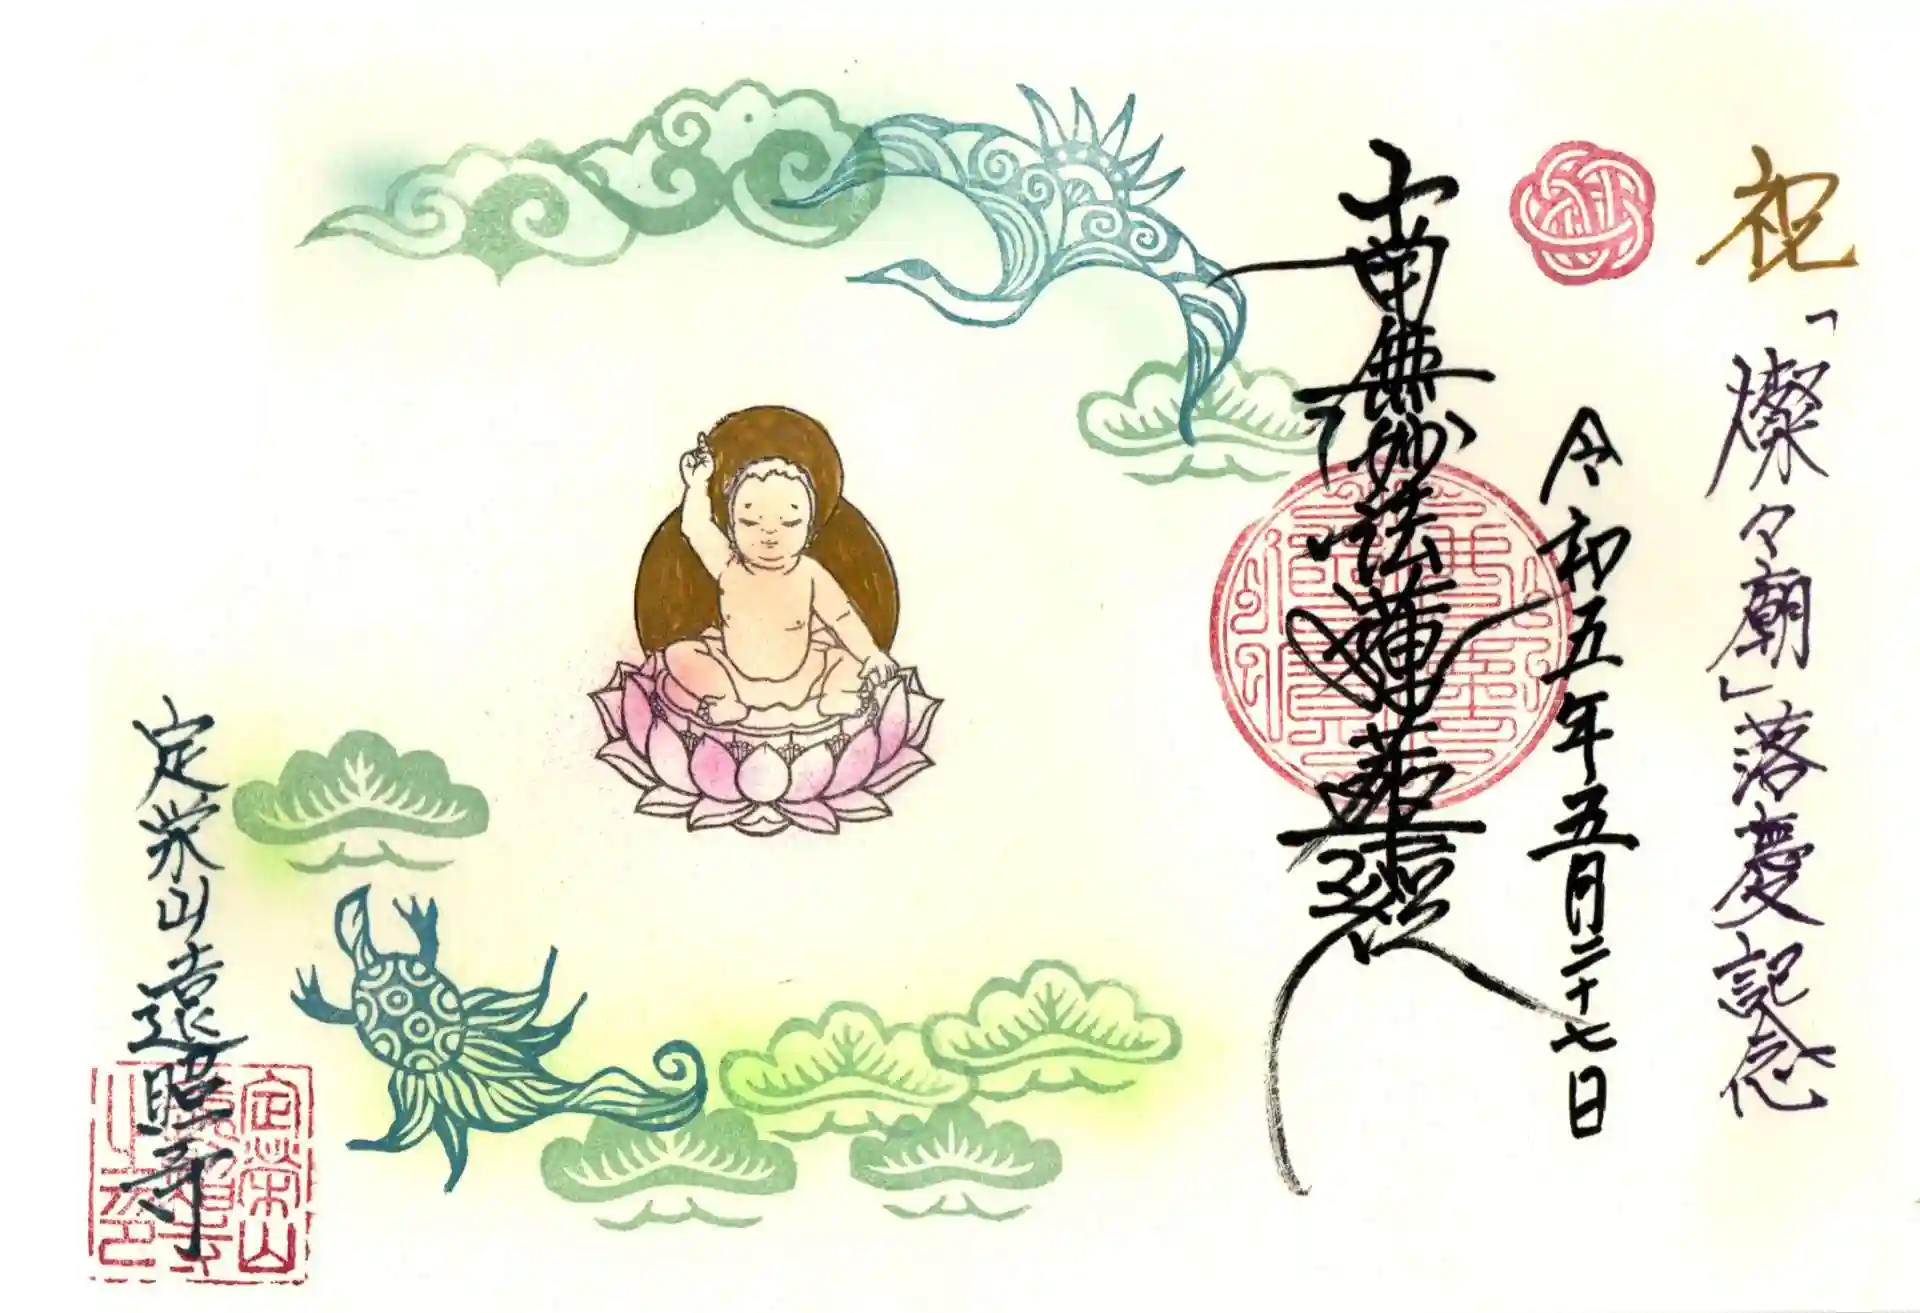 祝
「燦々廟」落慶記念
令和五年五月二十七日
南無妙法蓮華経
定栄山遠照寺